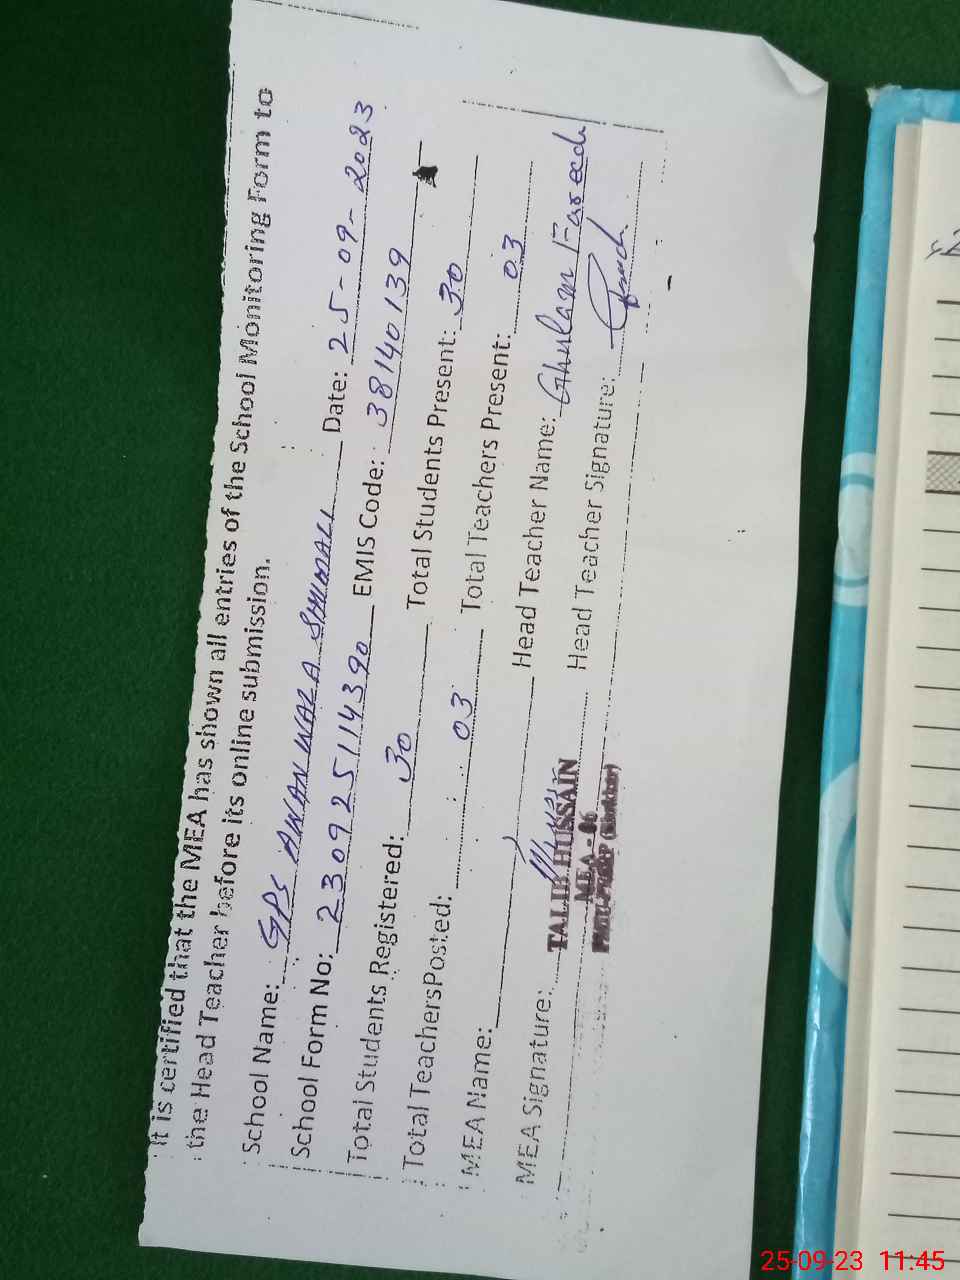 It is certified that the MEA has shown all entries of the School Monitoring Form to
the Head Teacher before its online submission.
School Name: GPS AWAN WALA SHUMALI Date: 25-09-2023
School Form No: 230925114390 EMIS Code: 38140139
Total Students Registered: 30 Total Students Present: 30
Total TeachersPosted: 03 Total Teachers Present: 03
MEA Name: Head Teacher Name: Ghulam Fareed
MEA Signature: Head Teacher Signature:
TALIB HUSSAIN
MEA - 06
25-09-23 11:45